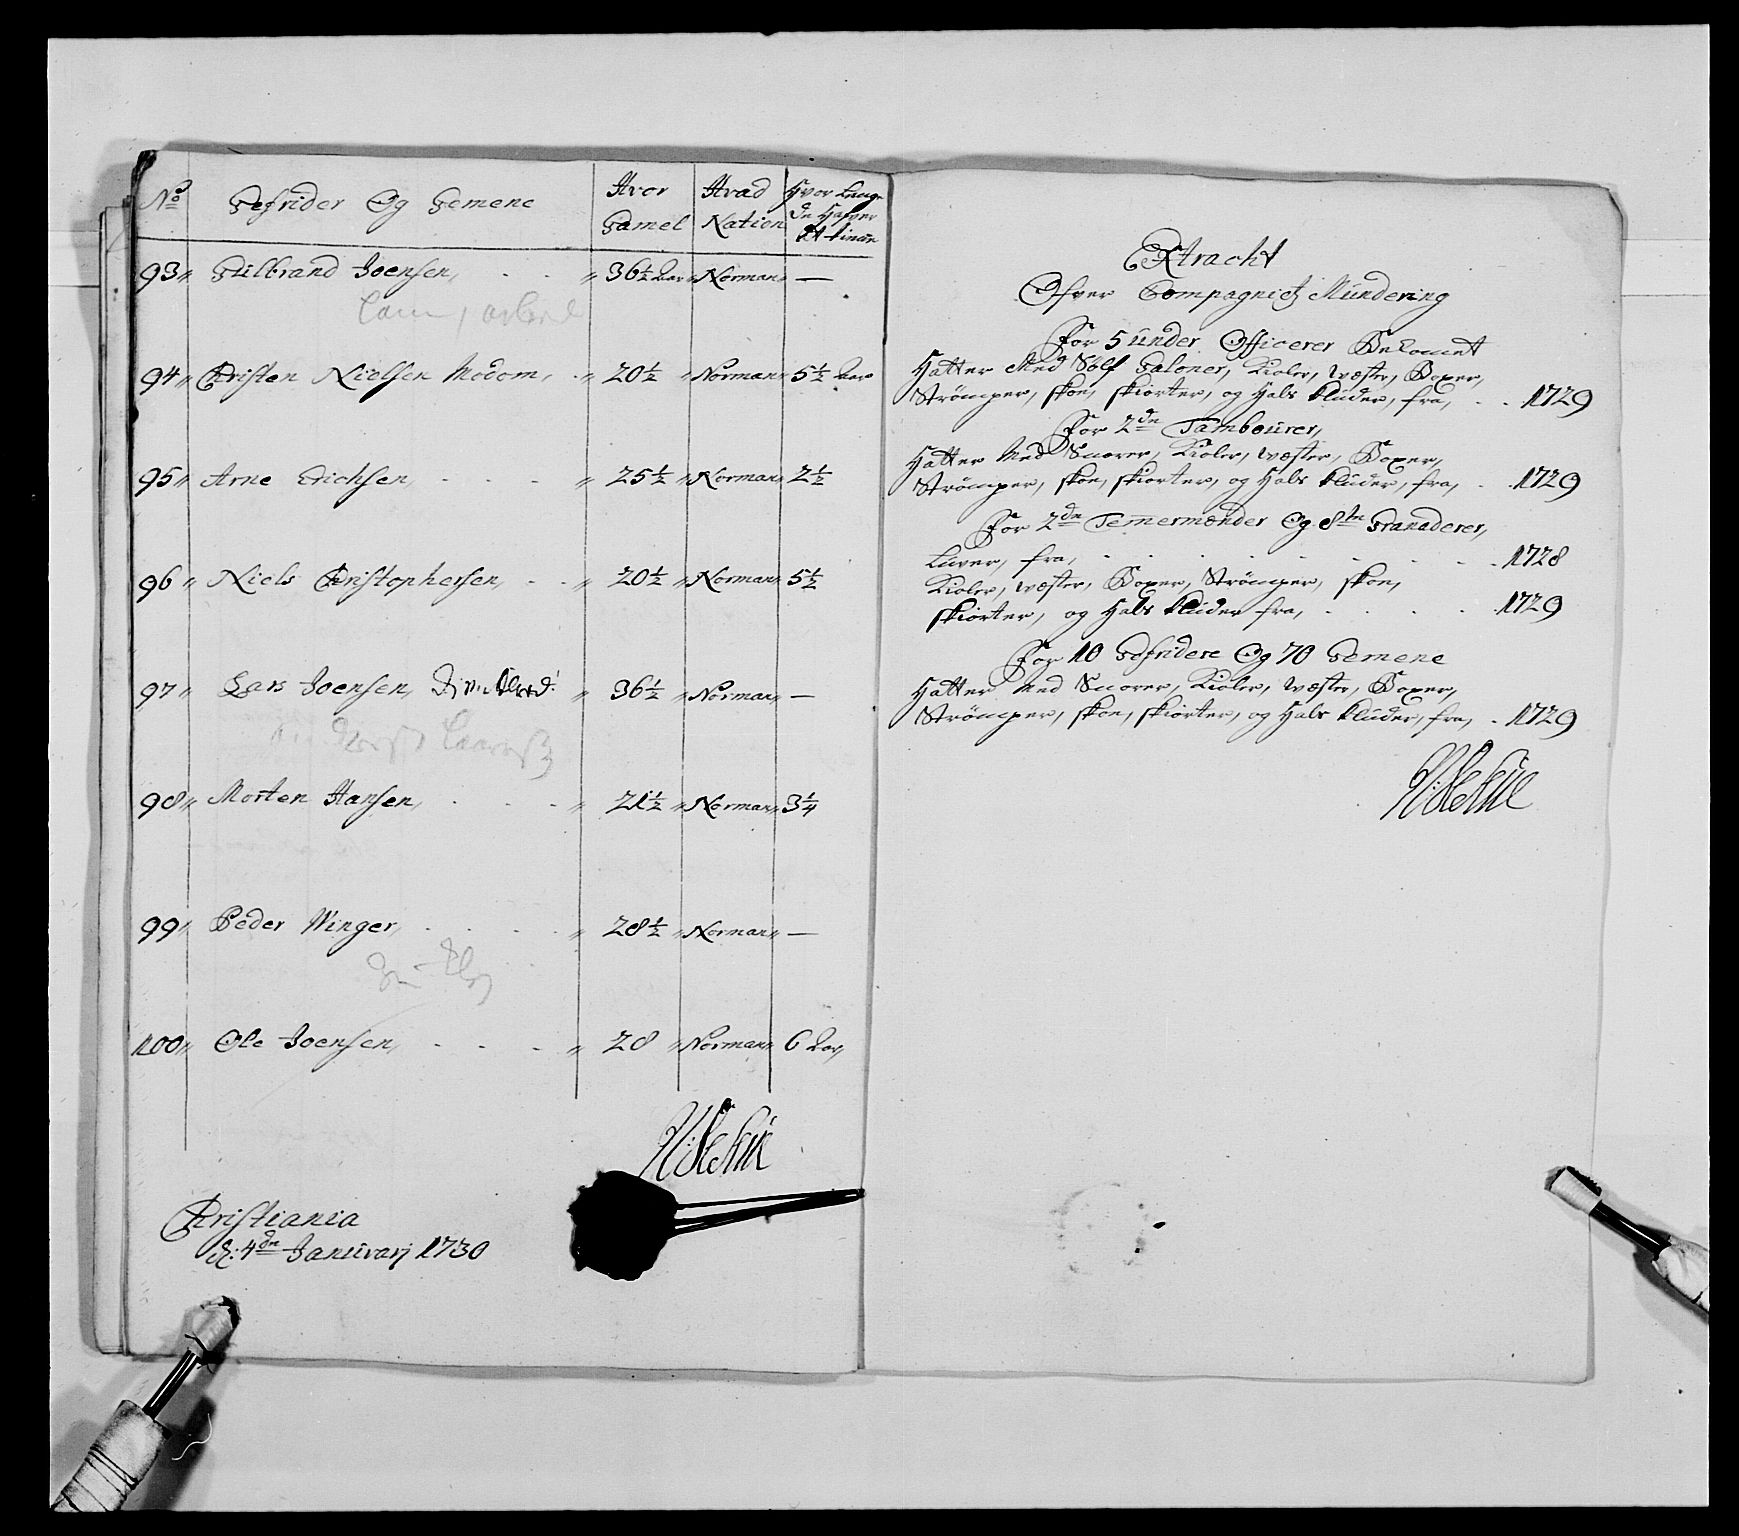 No Gefrider Og Gemene Hvor Gamel Hvad Nation Hvor Lenge de Hafver
93 Gulbrand Joensen, 36½ Norman —
94 Christen Nielsen Modom, 20½ Norman 5½ Aar
95 Arne Erichsen, 25½ Norman 2½
96 Niels Christophersen, 20½ Norman 5½
97 Lars Joensen, 36½ Norman —
98 Morten Hansen, 21½ Norman 3¼
99 Peder Winger, 28½ Norman —
100 Ole Joensen, 28 Norman 6 Aar,
Christiania
d: 4de Januvarj 1730
Extracht
Ofver Compagniets Mundering
For 5 under Officerer Bekomet
Hatter Med Sølf Galoner, Kioler, Wæster, Boxer,
Strømper, skoe, skiorter, og Hals kluder, fra, 1729
For 2de Tambourer,
Hatter Med Snorer, Kioler, wæster, Boxer,
Strømper, skoe, skiorter, og Hals kluder, fra, 1729
For 2de Temermænder Og 8te Granaderer,
Luver, fra, 1728
Kioler, wæster, Boxer, Strømper, skoe,
skiorter, og Hals kluder fra, 1729
For 10 Gefridere Og 70 Gemene
Hatter Med Snorer, Kioler, wæster, Boxer,
Strømper, skoe, skiorter, og Hals kluder, fra, 1729